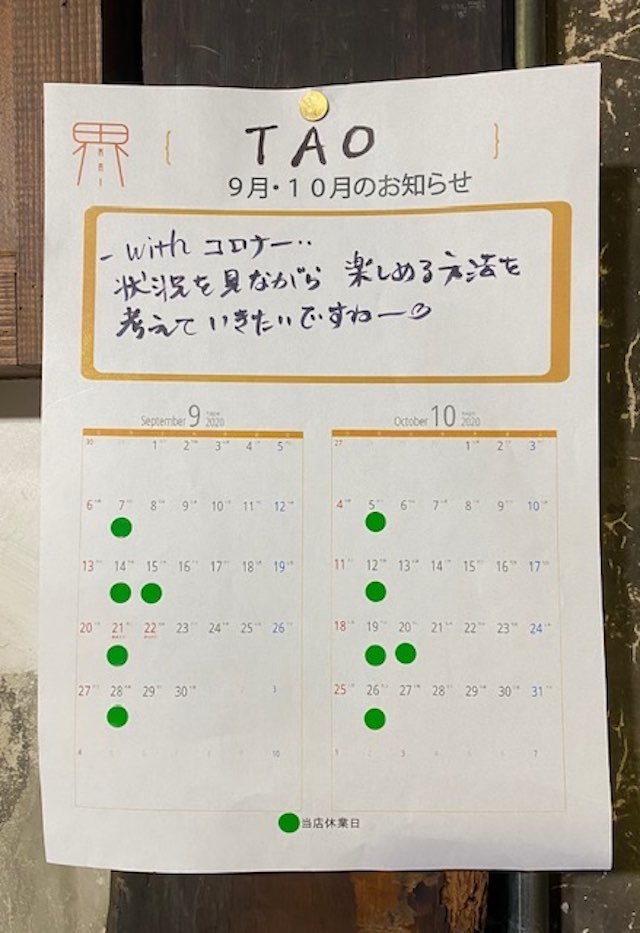 界
KAI
{ TAO }
9月・10月のお知らせ
- with コロナー‥
状況を見ながら 楽しめる方法を
考えていきたいですねー
September 9 2020
30 1 2 3 4 5
6 7 8 9 10 11 12
13 14 15 16 17 18 19
20 21 22 23 24 25 26
27 28 29 30 3
4 10
October 10 2020
27 1 2 3
4 5 6 7 8 9 10
11 12 13 14 15 16 17
18 19 20 21 22 23 24
25 26 27 28 29 30 31
1 2 3 4 5 6 7
当店休業日